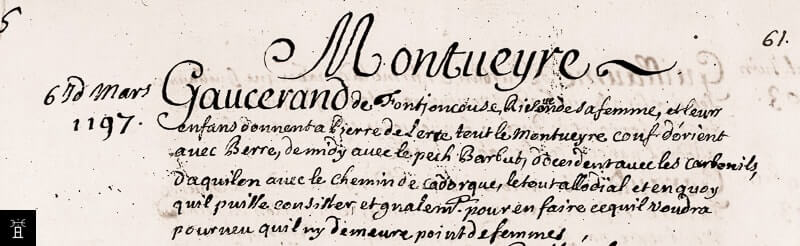 61.
Montueyre
6 Id Mars
1197.
Gaucerand de Fontjoncouse, sa femme, et leurs
enfans donnent a Pierre de Lerce, tout le Montueyre conf. d'orient
avec Berre, de midy avec le pech Barbut, d'occident avec les Carbonils,
d'aquilon avec le chemin de Cadorque, le tout allodial et en quoy
quil puisse consister, et gnalemt. pour en faire ce quil voudra
pourveu quil ny demeure point de femmes,